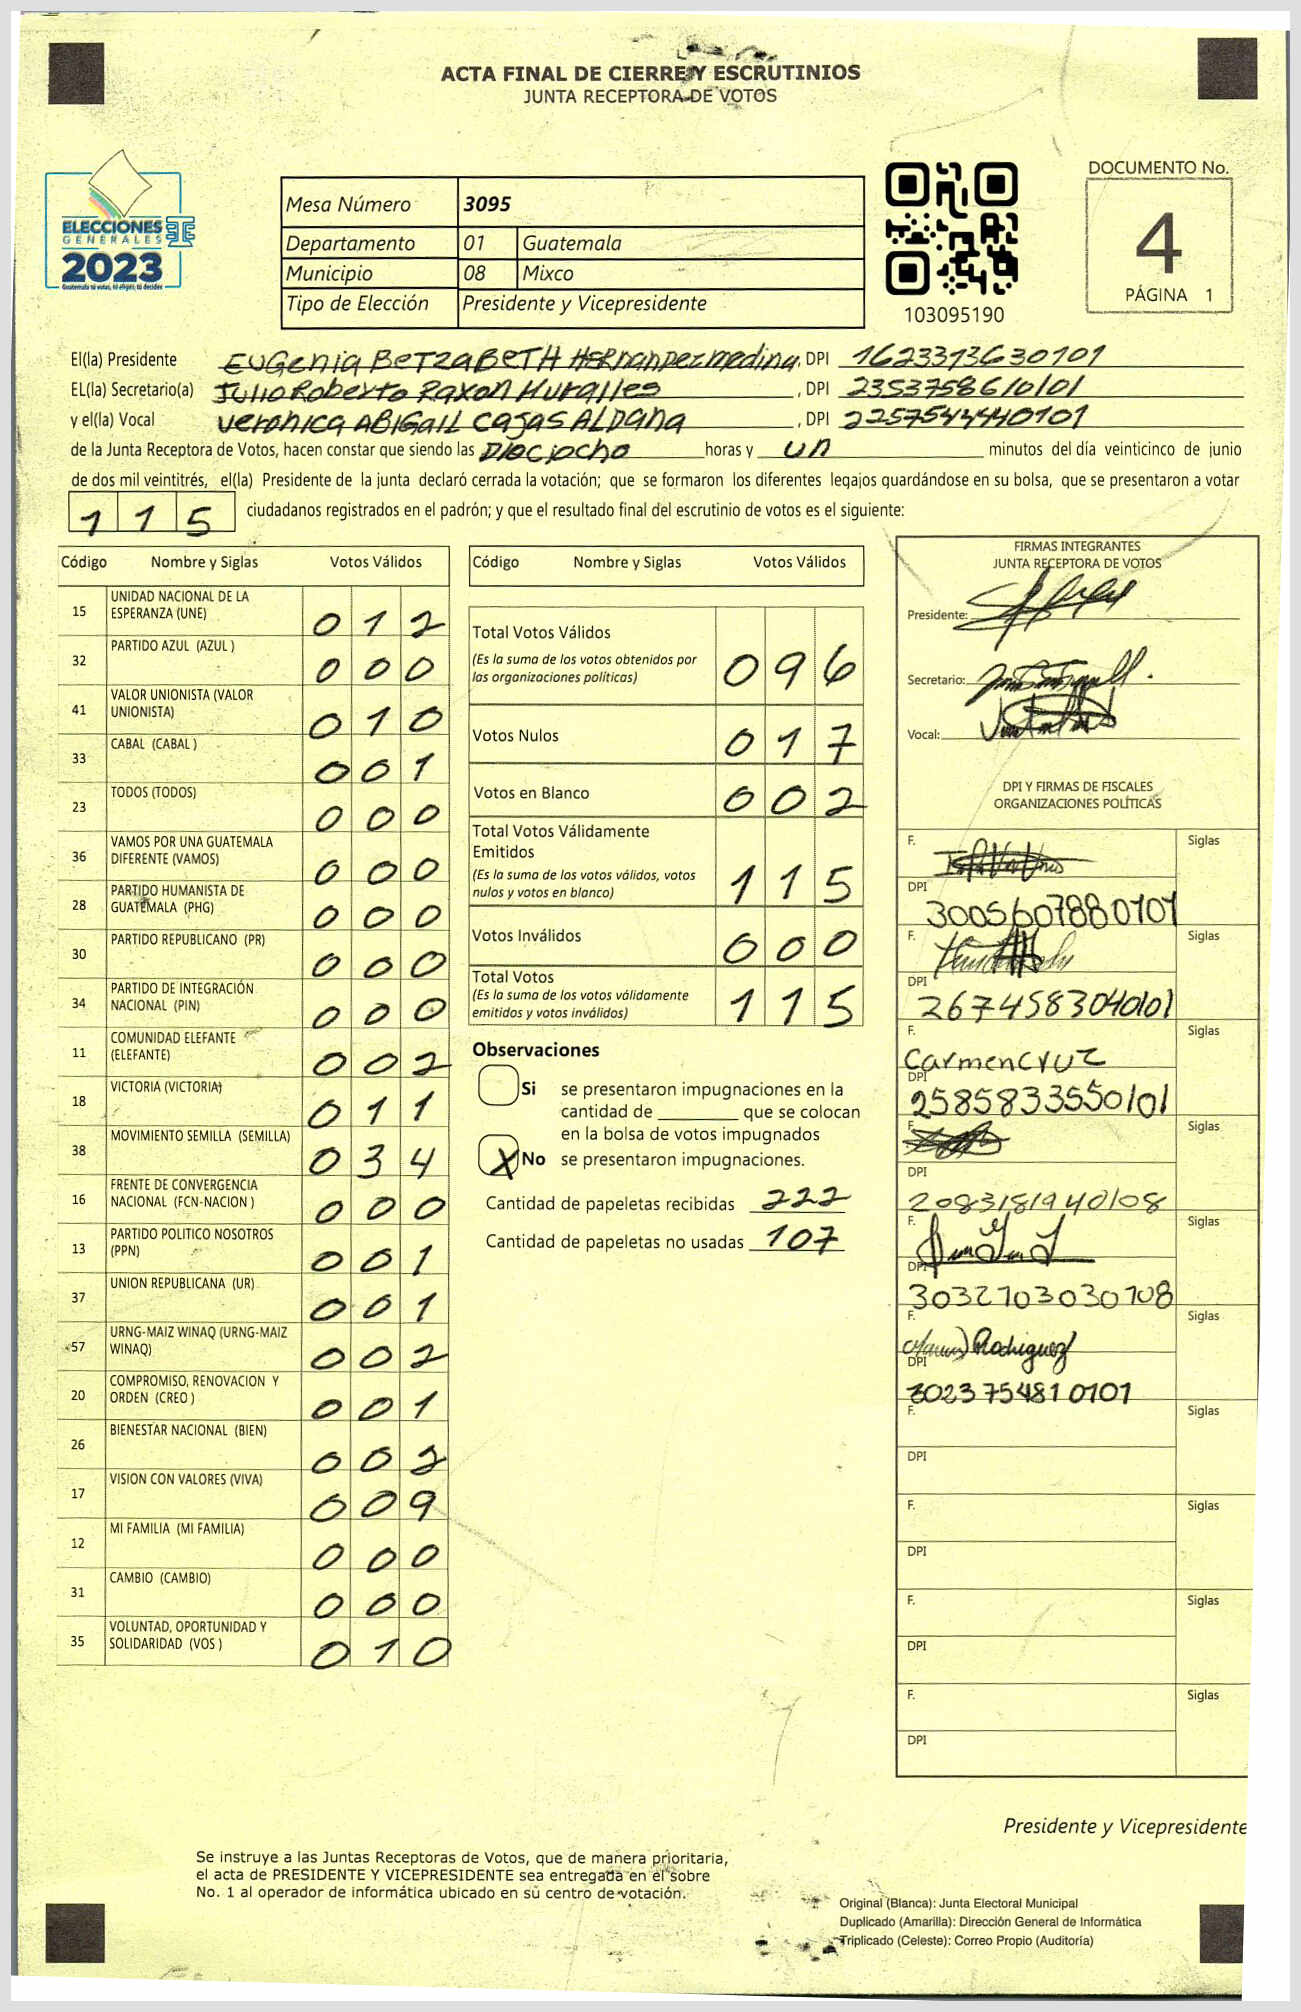 ACTA FINAL DE CIERRE Y ESCRUTINIOS
JUNTA RECEPTORA DE VOTOS
ELECCIONES
GENERALES
2023
Guatemala tú votas, tú eliges, tú decides
Mesa Número 3095
Departamento 01 Guatemala
Municipio 08 Mixco
Tipo de Elección Presidente y Vicepresidente
103095190
DOCUMENTO No.
4
PÁGINA 1
El(la) Presidente EUGENIA BETZABETH HERNANDEZ MEDINA, DPI 1623313630101
EL(la) Secretario(a) Julio Roberto Raxon Muralles, DPI 2353758610101
y el(la) Vocal Veronica ABIGAIL Cajas ALDANA, DPI 2257544440101
de la Junta Receptora de Votos, hacen constar que siendo las Dieciocho horas y un minutos del día veinticinco de junio
de dos mil veintitrés, el(la) Presidente de la junta declaró cerrada la votación; que se formaron los diferentes legajos guardándose en su bolsa, que se presentaron a votar
115 ciudadanos registrados en el padrón; y que el resultado final del escrutinio de votos es el siguiente:
Código Nombre y Siglas Votos Válidos
15 UNIDAD NACIONAL DE LA ESPERANZA (UNE) 012
32 PARTIDO AZUL (AZUL ) 000
41 VALOR UNIONISTA (VALOR UNIONISTA) 010
33 CABAL (CABAL ) 001
23 TODOS (TODOS) 000
36 VAMOS POR UNA GUATEMALA DIFERENTE (VAMOS) 000
28 PARTIDO HUMANISTA DE GUATEMALA (PHG) 000
30 PARTIDO REPUBLICANO (PR) 000
34 PARTIDO DE INTEGRACIÓN NACIONAL (PIN) 000
11 COMUNIDAD ELEFANTE (ELEFANTE) 002
18 VICTORIA (VICTORIA) 011
38 MOVIMIENTO SEMILLA (SEMILLA) 034
16 FRENTE DE CONVERGENCIA NACIONAL (FCN-NACION ) 000
13 PARTIDO POLITICO NOSOTROS (PPN) 001
37 UNION REPUBLICANA (UR) 001
57 URNG-MAIZ WINAQ (URNG-MAIZ WINAQ) 002
20 COMPROMISO, RENOVACION Y ORDEN (CREO ) 001
26 BIENESTAR NACIONAL (BIEN) 002
17 VISION CON VALORES (VIVA) 009
12 MI FAMILIA (MI FAMILIA) 000
31 CAMBIO (CAMBIO) 000
35 VOLUNTAD, OPORTUNIDAD Y SOLIDARIDAD (VOS ) 010
Código Nombre y Siglas Votos Válidos
Total Votos Válidos 096
(Es la suma de los votos obtenidos por
las organizaciones políticas)
Votos Nulos 017
Votos en Blanco 002
Total Votos Válidamente
Emitidos 115
(Es la suma de los votos válidos, votos
nulos y votos en blanco)
Votos Inválidos 000
Total Votos 115
(Es la suma de los votos válidamente
emitidos y votos inválidos)
Observaciones
Si se presentaron impugnaciones en la
cantidad de ________ que se colocan
en la bolsa de votos impugnados
X No se presentaron impugnaciones.
Cantidad de papeletas recibidas 222
Cantidad de papeletas no usadas 107
FIRMAS INTEGRANTES
JUNTA RECEPTORA DE VOTOS
Presidente:
Secretario:
Vocal:
DPI Y FIRMAS DE FISCALES
ORGANIZACIONES POLÍTICAS
F. Siglas
DPI
3005607880101
F. Siglas
DPI
2674583040101
F. Siglas
Carmen Cruz
DPI
2585833550101
F. Siglas
DPI
2083181940108
F. Siglas
DPI
3032703030108
F. Siglas
Rodriguez
DPI
3023754810101
F. Siglas
DPI
F. Siglas
DPI
F. Siglas
DPI
F. Siglas
DPI
Presidente y Vicepresidente
Se instruye a las Juntas Receptoras de Votos, que de manera prioritaria,
el acta de PRESIDENTE Y VICEPRESIDENTE sea entregada en el sobre
No. 1 al operador de informática ubicado en su centro de votación.
Original (Blanca): Junta Electoral Municipal
Duplicado (Amarilla): Dirección General de Informática
Triplicado (Celeste): Correo Propio (Auditoría)